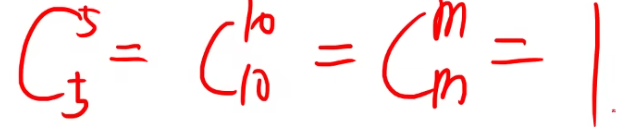 C₅⁵ = C₁₀¹⁰ = Cₘᵐ = 1.